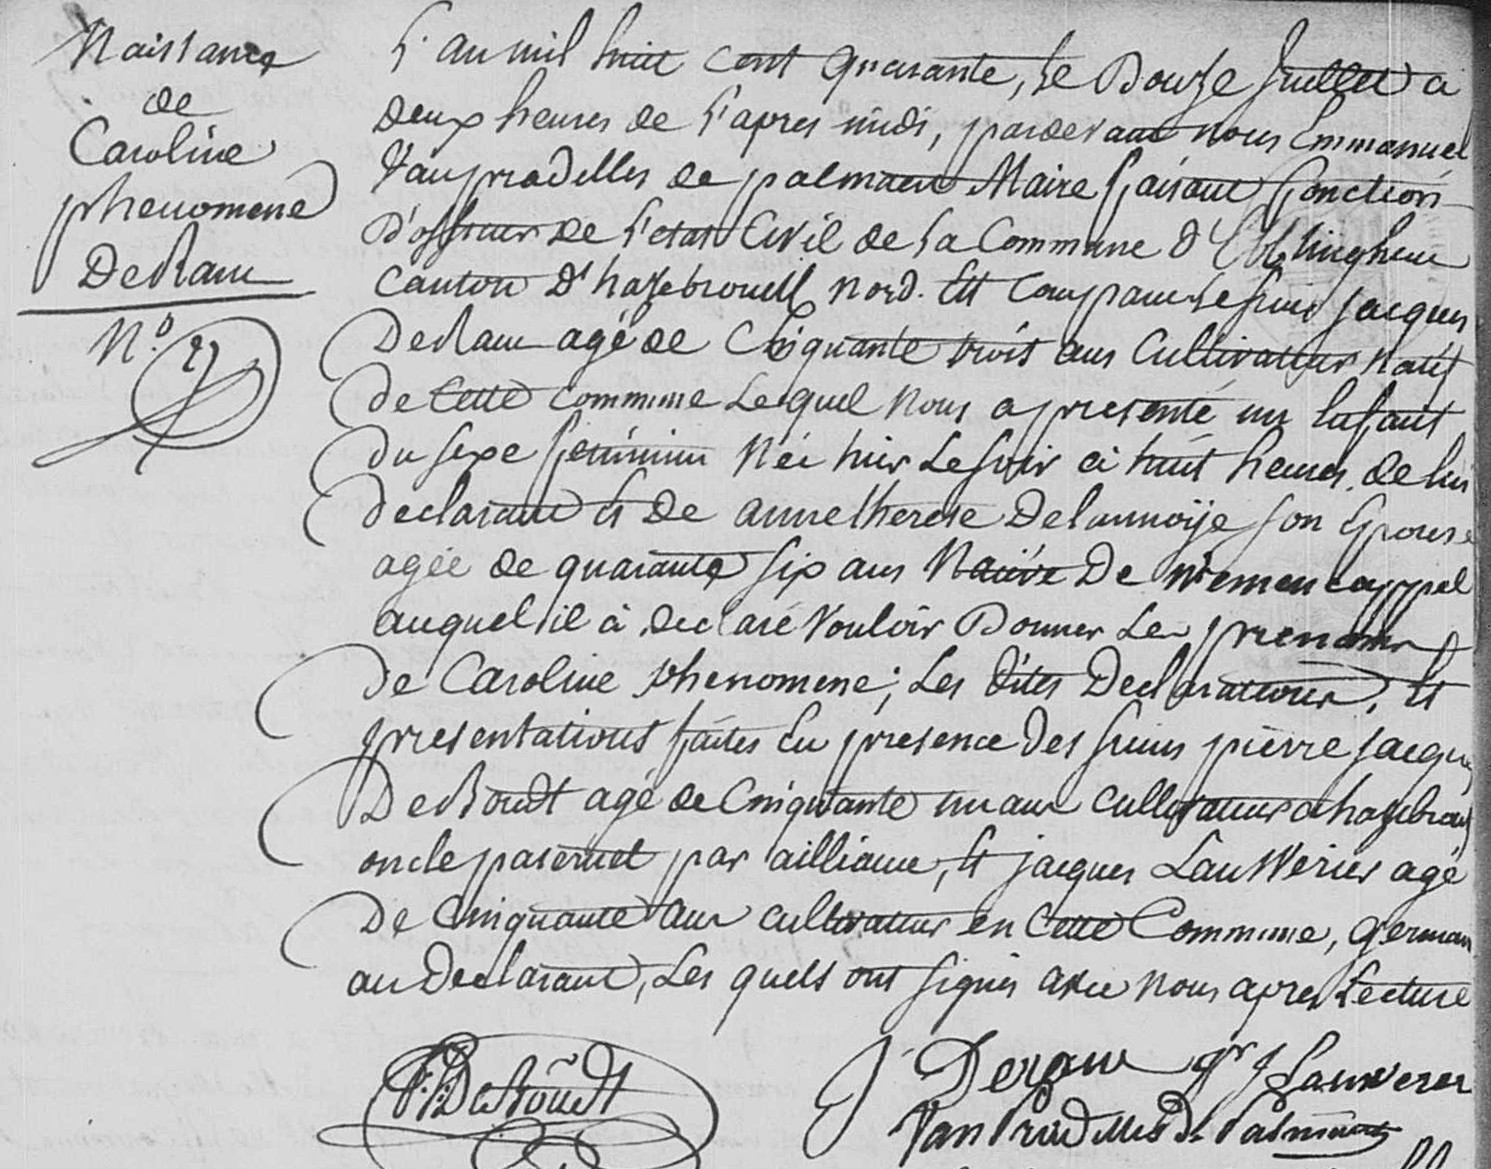 Naissance
de
Caroline
phenomene
Deram
N.°
L'an mil huit cent quarante, le Douze Juillet a
deux heures de l'apres midi, pardevant nous Emmanuel
Vanpradelles de palmaert Maire faisant fonction
D'officier de l'etat Civil de la Commune d'Eblinghem
canton d'hazebrouck nord. Est Comparu le sieur jacques
Deram agé de Cinquante trois ans Cultivateur natif
de Cette commune Lequel nous a presenté un Enfant
du sexe feminin Née hier Le soir à huit heures, de lui
declarant et de anne therese Delannoÿe son Epouse
agée de quarante six ans Native De Wemaercappel
auquel il à declaré Vouloir Donner Les prenoms
de Caroline phenomene; Les dites Declarations, Et
presentations faites En presence des sieurs pierre jacques
De Boudt agé de Cinquante un ans cultivateur a hazebrouck
oncle paternel par ailliance, et jacques Lauwerier agé
De Cinquante ans cultivateur en Cette Commune, germain
au Declarant, Les quels ont signés avec nous apres Lecture
J Deram J Lauwerier
VanPradelles De Palmaert